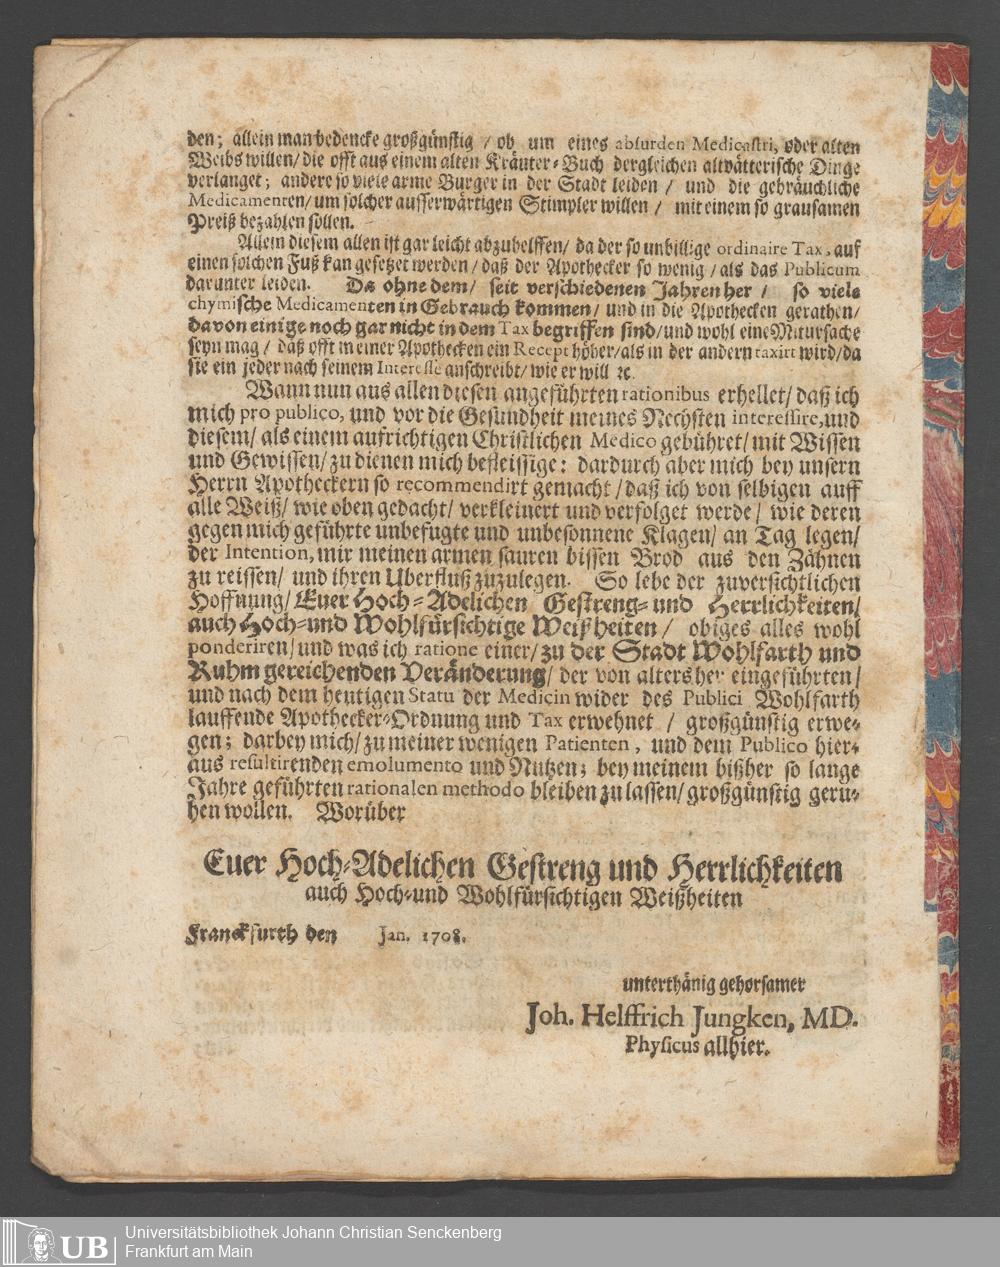 den; allein man bedencke großgünstig / ob um eines absurden Medicastri, oder alten
Weibs willen/ die offt aus einem alten Kräuter-Buch dergleichen altvätterische Dinge
verlanget; andere so viele arme Burger in der Stadt leiden / und die gebräuchliche
Medicamenten/ um solcher ausserwärtigen Stimpler willen / mit einem so grausamen
Preiß bezahlen sollen.
Allein diesem allen ist gar leicht abzuhelffen/ da der so unbillige ordinaire Tax, auf
einen solchen Fuß kan gesetzet werden / daß der Apothecker so wenig / als das Publicum
darunter leiden. Da ohne dem/ seit verschiedenen Jahren her / so viele
chymische Medicamenten in Gebrauch kommen/ und in die Apothecken gerathen/
davon einige noch gar nicht in dem Tax begriffen sind/ und wohl eine Mitursache
seyn mag / daß offt in einer Apothecken ein Recept höher/ als in der andern taxirt wird/ da
sie ein jeder nach seinem Interesse anschreibt/ wie er will ꝛc.
Wann nun aus allen diesen angeführten rationibus erhellet/ daß ich
mich pro publico, und vor die Gesundheit meines Nechsten interessire, und
diesem/ als einem aufrichtigen Christlichen Medico gebühret/ mit Wissen
und Gewissen/ zu dienen mich befleissige: dardurch aber mich bey unsern
Herrn Apotheckern so recommendirt gemacht / daß ich von selbigen auff
alle Weiß/ wie oben gedacht/ verkleinert und verfolget werde / wie deren
gegen mich geführte unbefugte und unbesonnene Klagen/ an Tag legen/
der Intention, mir meinen armen sauren bissen Brod aus den Zähnen
zu reissen/ und ihren Uberfluß zuzulegen. So lebe der zuversichtlichen
Hoffnung/ Euer Hoch-Adelichen Gestreng- und Herrlichkeiten/
auch Hoch- und Wohlfürsichtige Weißheiten / obiges alles wohl
ponderiren/ und was ich ratione einer/ zu der Stadt Wohlfarth und
Ruhm gereichenden Veränderung/ der von alters her eingeführten/
und nach dem heutigen Statu der Medicin wider des Publici Wohlfarth
lauffende Apothecker-Ordnung und Tax erwehnet / großgünstig erwe-
gen; darbey mich/ zu meiner wenigen Patienten, und dem Publico hier-
aus resultirenden emolumento und Nutzen; bey meinem bißher so lange
Jahre geführten rationalen methodo bleiben zu lassen/ großgünstig geru-
hen wollen. Worüber
Euer Hoch-Adelichen Gestreng und Herrlichkeiten
auch Hoch- und Wohlfürsichtigen Weißheiten
Franckfurth den Jan. 1708.
unterthänig gehorsamer
Joh. Helffrich Jungken, MD.
Physicus allhier.
UB
Universitätsbibliothek Johann Christian Senckenberg
Frankfurt am Main